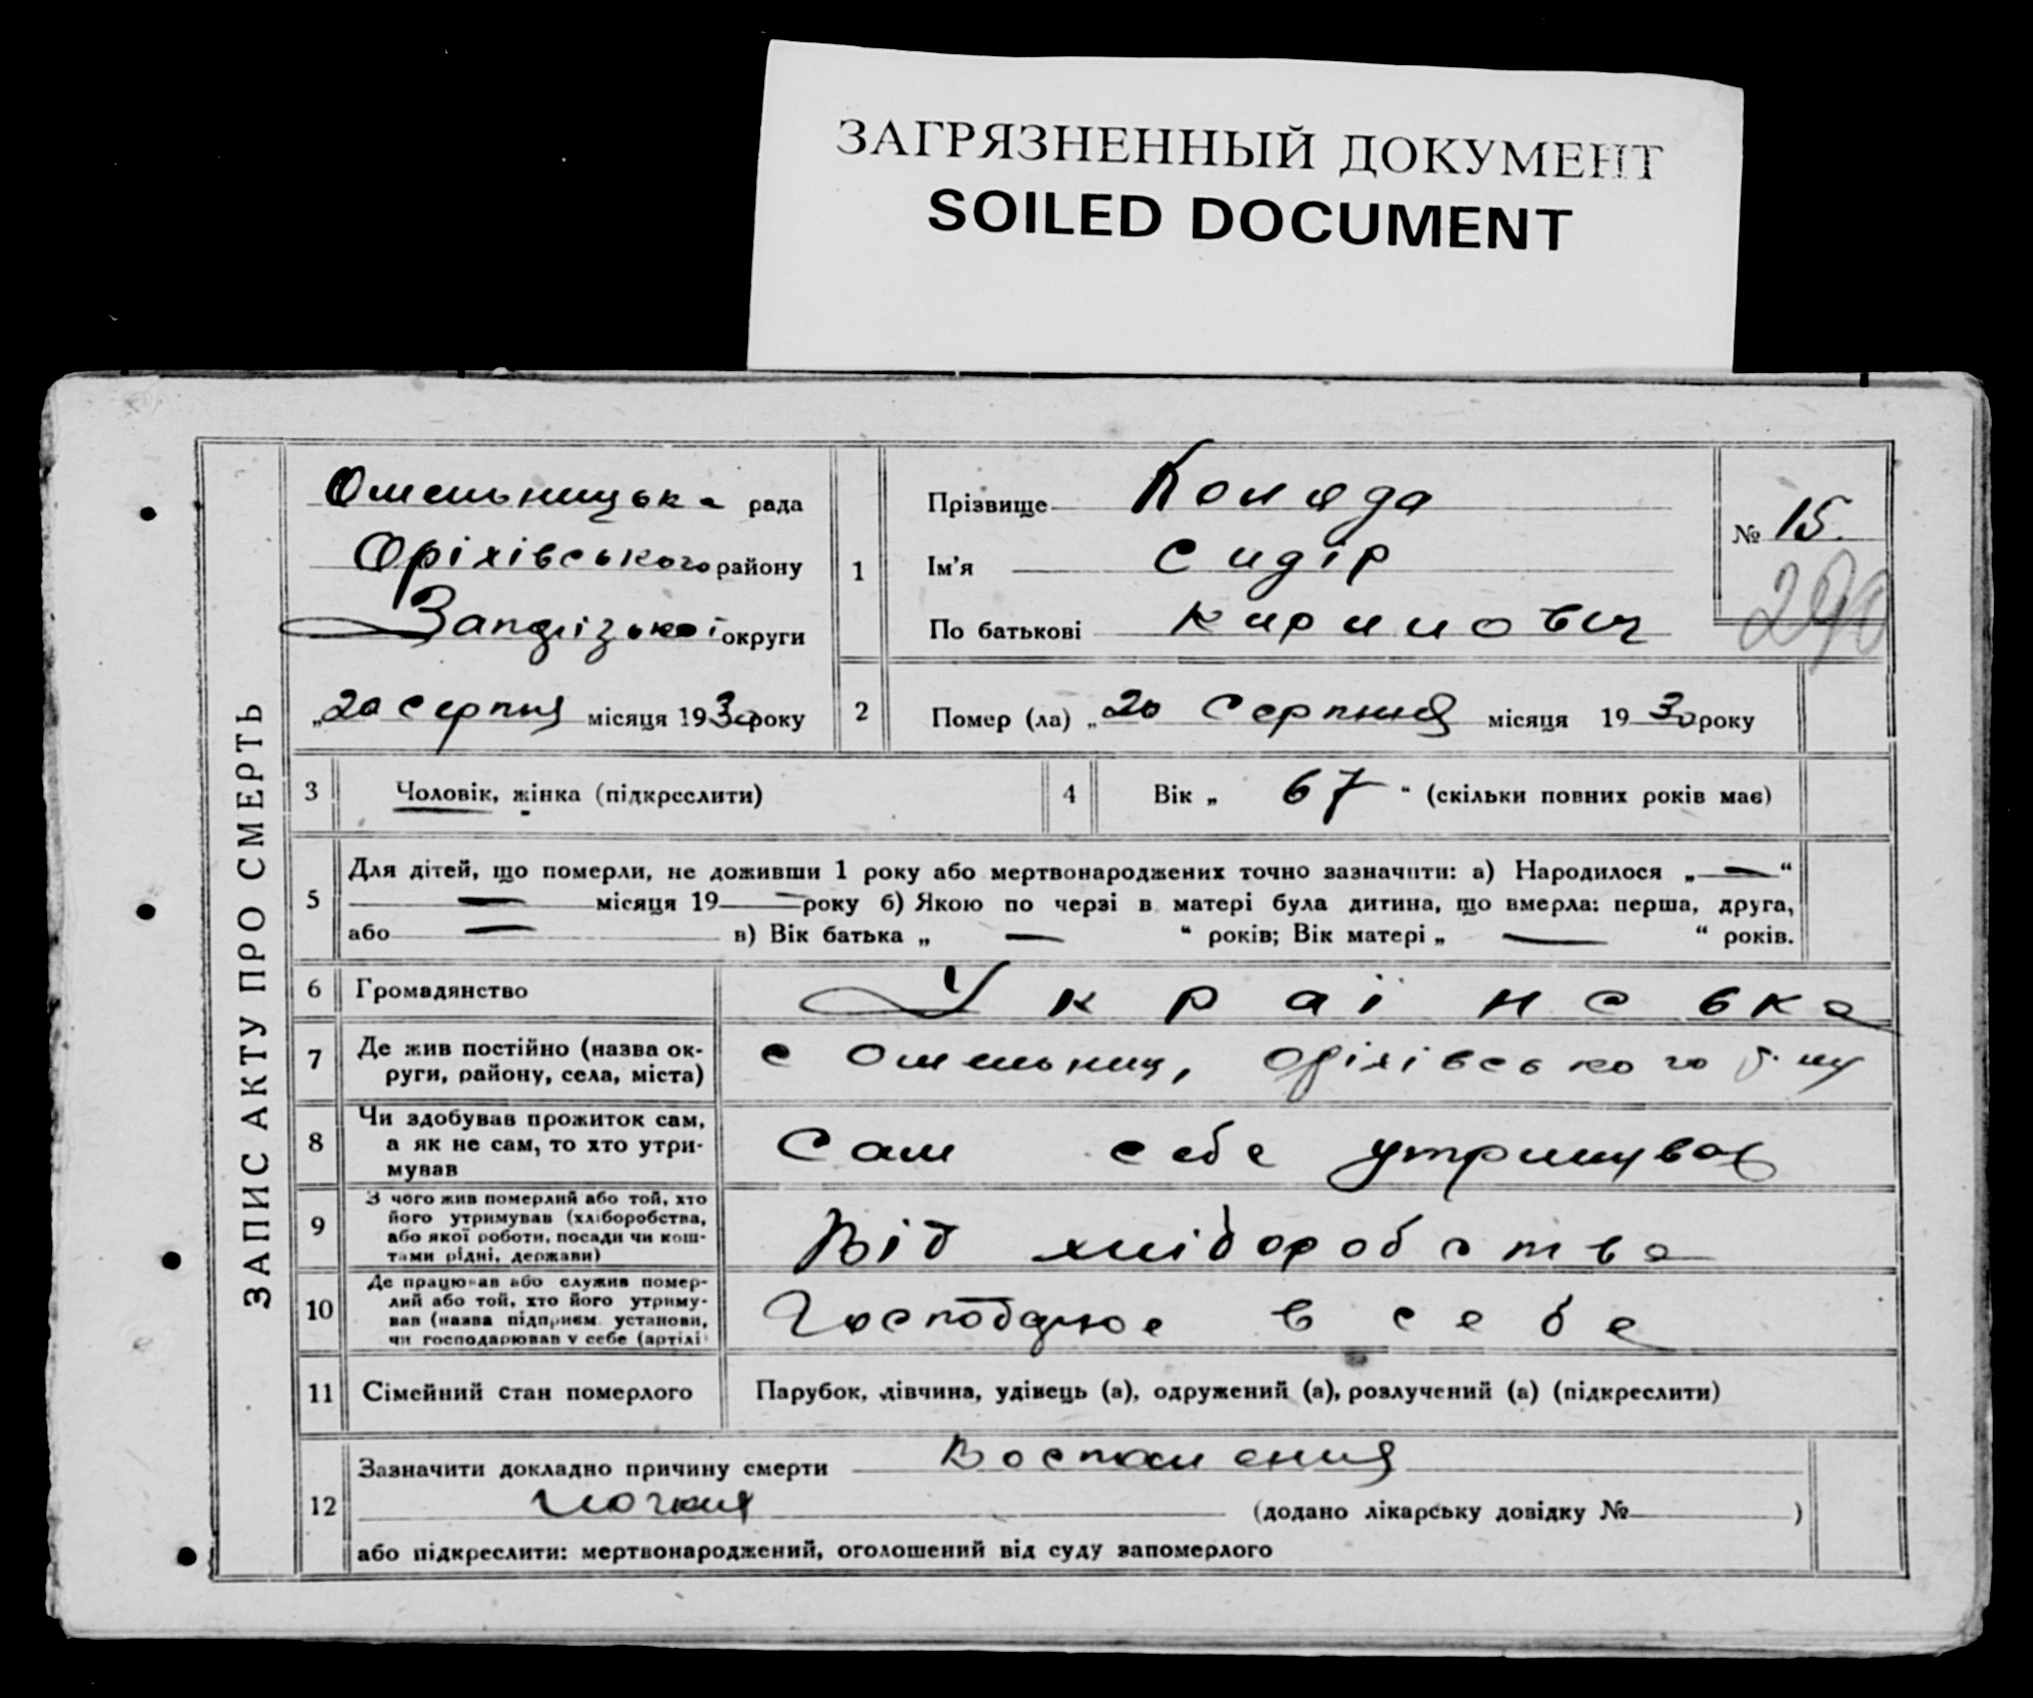 ЗАГРЯЗНЕННЫЙ ДОКУМЕНТ
SOILED DOCUMENT
ЗАПИС АКТУ ПРО СМЕРТЬ
Омельницька рада
Оріхівського району
Запорізької округи
„20 серпня місяця 1930 року
1
Прізвище Коляда
Ім'я Сидір
По батькові Кирилович
№ 15.
290
2
Помер (ла) „20 Серпня місяця 1930 року
3 Чоловік, жінка (підкреслити)
4 Вік „ 67 “ (скільки повних років має)
5
Для дітей, що померли, не доживши 1 року або мертвонароджених точно зазначити: а) Народилося „—“
— місяця 19— року б) Якою по черзі в матері була дитина, що вмерла: перша, друга,
або — в) Вік батька „ — “ років; Вік матері „ — “ років.
6 Громадянство Українська
7 Де жив постійно (назва ок-
руги, району, села, міста)
с Омельник, Оріхівського р-ну
8 Чи здобував прожиток сам,
а як не сам, то хто утри-
мував
Сам себе утримував
9 З чого жив померлий або той, хто
його утримував (хліборобства,
або якої роботи, посади чи кош-
тами рідні, держави)
Від хліборобства
10 Де працював або служив помер-
лий або той, хто його утриму-
вав (назва підприєм. установи,
чи господарював у себе (артілі
в себе
11 Сімейний стан померлого Парубок, дівчина, удівець (а), одружений (а), розлучений (а) (підкреслити)
12
Зазначити докладно причину смерти Воспаления
(додано лікарську довідку №)
або підкреслити: мертвонароджений, оголошений від суду запомерлого